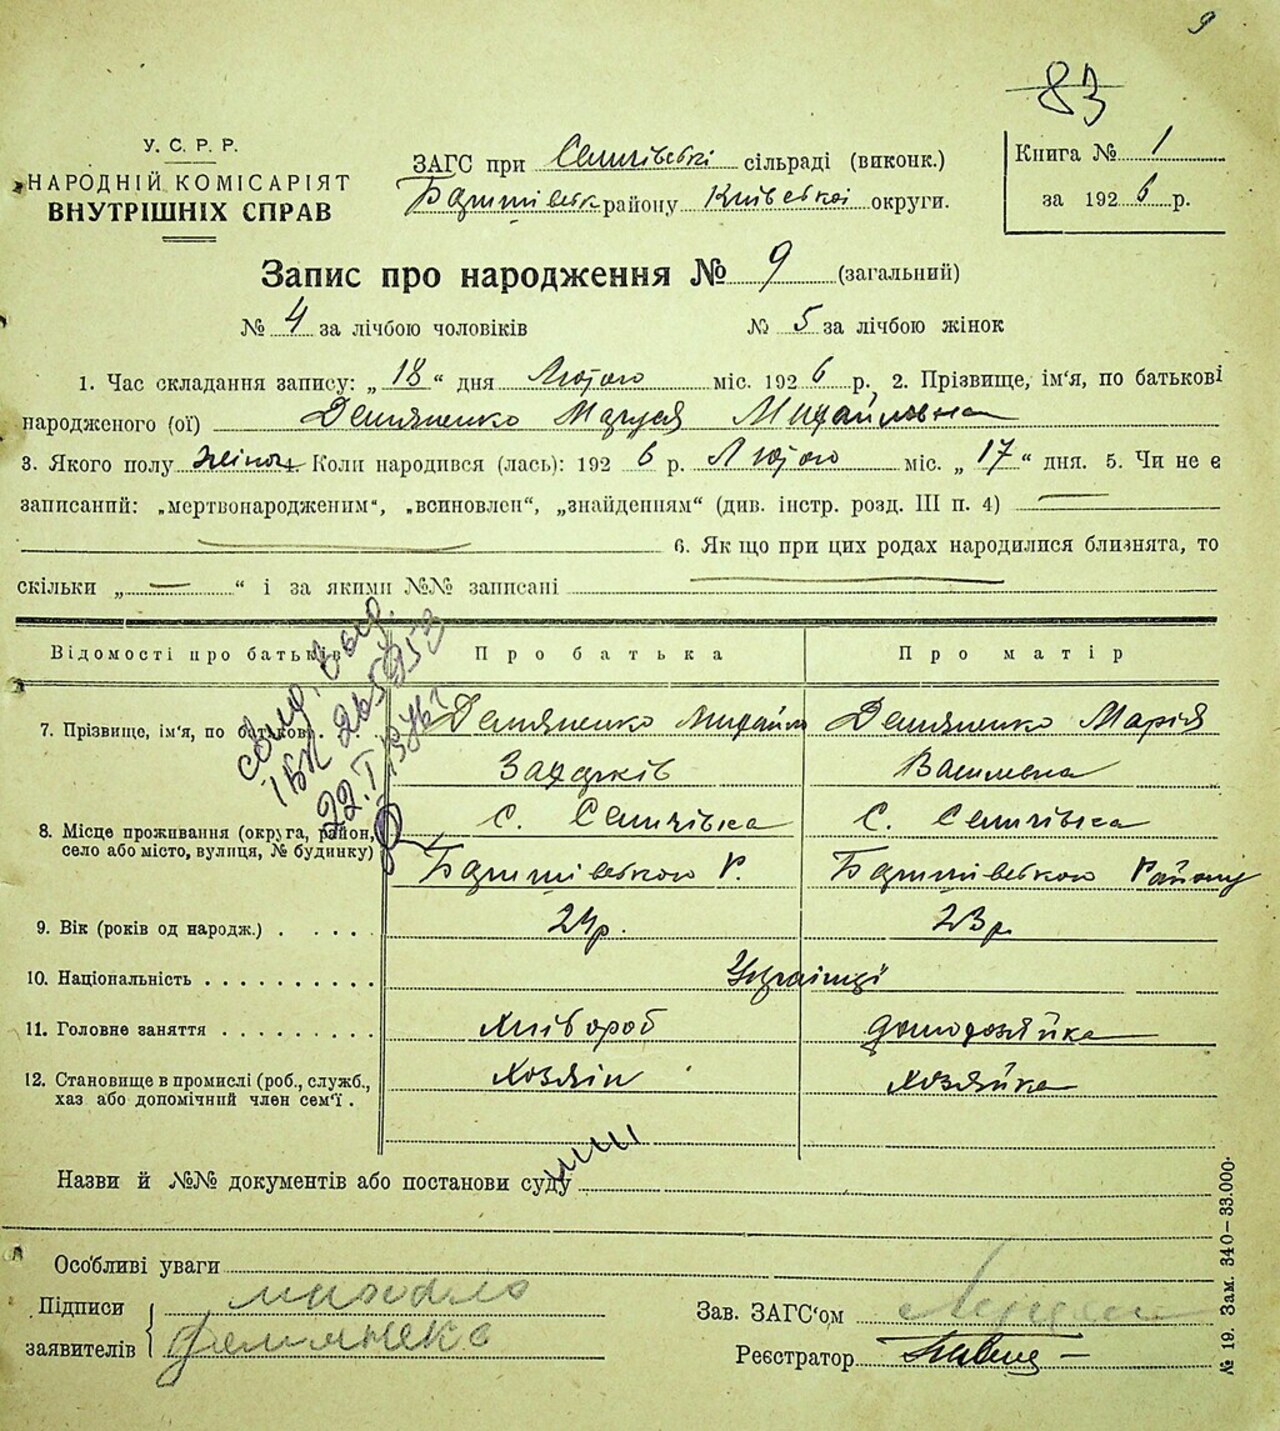 9
83
У. С. Р. Р.
НАРОДНІЙ КОМІСАРІЯТ
ВНУТРІШНІХ СПРАВ
ЗАГС при сільраді (виконк.)
району Київської округи.
Книга № 1
за 1926 р.
Запис про народження № 9 (загальний)
№ 4 за лічбою чоловіків № 5 за лічбою жінок
1. Час складання запису: „18“ дня Лютого міс. 1926 р. 2. Прізвище, ім'я, по батькові
народженого (ої) Демяненко Маруся Михайловна
3. Якого полу жіноч. Коли народився (лась): 1926 р. Лютого міс. „17“ дня. 5. Чи не є
записаний: „мертвонародженим“, „всиновлен“, „знайденням“ (див. інстр. розд. III п. 4)
6. Як що при цих родах народилися близнята, то
скільки „ “ і за якими №№ записані
Відомості про батьків Про батька Про матір
7. Прізвище, ім'я, по батькові Демяненко Михайло Демяненко Марія
Захарків Василевна
8. Місце проживання (округа, район, с. Семчівка с. Семчівка
село або місто, вулиця, № будинку) р. Району
9. Вік (років од народж.) 24р. 23р.
10. Національність Українці
11. Головне заняття Хлібороб домохозяйка
12. Становище в промислі (роб., служб., Хозяін Хозяйка
хаз або допомічний член сем'ї.
Назви й №№ документів або постанови суду
Особливі уваги
Підписи михаило
заявителів Демянека
Зав. ЗАГС'ом
Реєстратор
№ 19. Зам. 340–33.000.